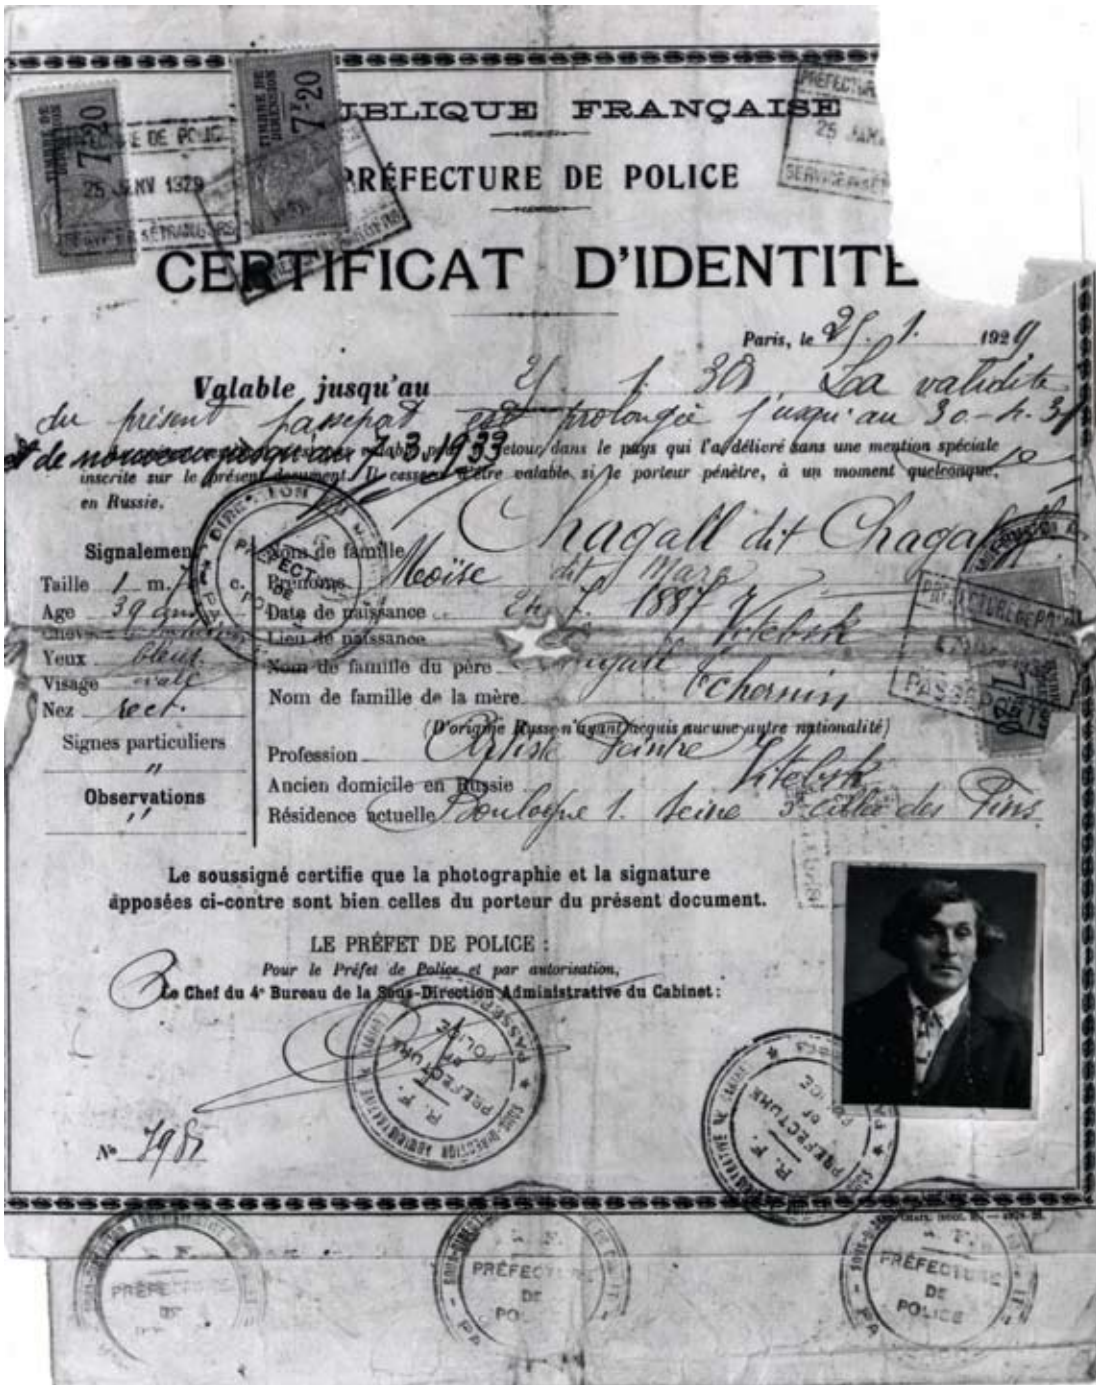 RÉPUBLIQUE FRANÇAISE
PRÉFECTURE DE POLICE
CERTIFICAT D'IDENTITÉ
TIMBRE DE DIMENSION
7F20
TIMBRE DE DIMENSION
7F20
25 JANV 1929
Paris, le 25. 1. 1929
Valable jusqu'au 25 1 30 La validité
du présent passeport est prolongée jusqu'au 30-4-31
et de nouveau jusqu'au 7.3.1933 retour dans le pays qui l'a délivré sans une mention spéciale
inscrite sur le présent document. Il cessera d'être valable si le porteur pénètre, à un moment quelconque,
en Russie.
Signalement
Taille 1 m. 7
Age 39 ans
Chev
Yeux bleus
Visage ovale
Nez rect.
Signes particuliers
"
Observations
"
Nom de famille Chagall dit Chagall
Prénoms Moïse dit Marc
Date de naissance 24 7. 1887
Lieu de naissance Vitebsk
Nom de famille du père
Nom de famille de la mère Tchernin
(D'origine Russe n'ayant acquis aucune autre nationalité)
Profession Artiste Peintre
Ancien domicile en Russie Vitebsk
Résidence actuelle Boulogne s. Seine 3 allée des Pins
Le soussigné certifie que la photographie et la signature
apposées ci-contre sont bien celles du porteur du présent document.
LE PRÉFET DE POLICE :
Pour le Préfet de Police et par autorisation,
Le Chef du 4e Bureau de la Sous-Direction Administrative du Cabinet :
R. F.
PRÉFECTURE
DE
POLICE
SOUS-DIRECTION ADMINISTRATIVE DU CABINET
PASSEPORTS
R. F.
PRÉFECTURE
DE
POLICE
No
PRÉFECTURE
DE
PRÉFECTURE
DE
PRÉFECTURE
DE
POLICE